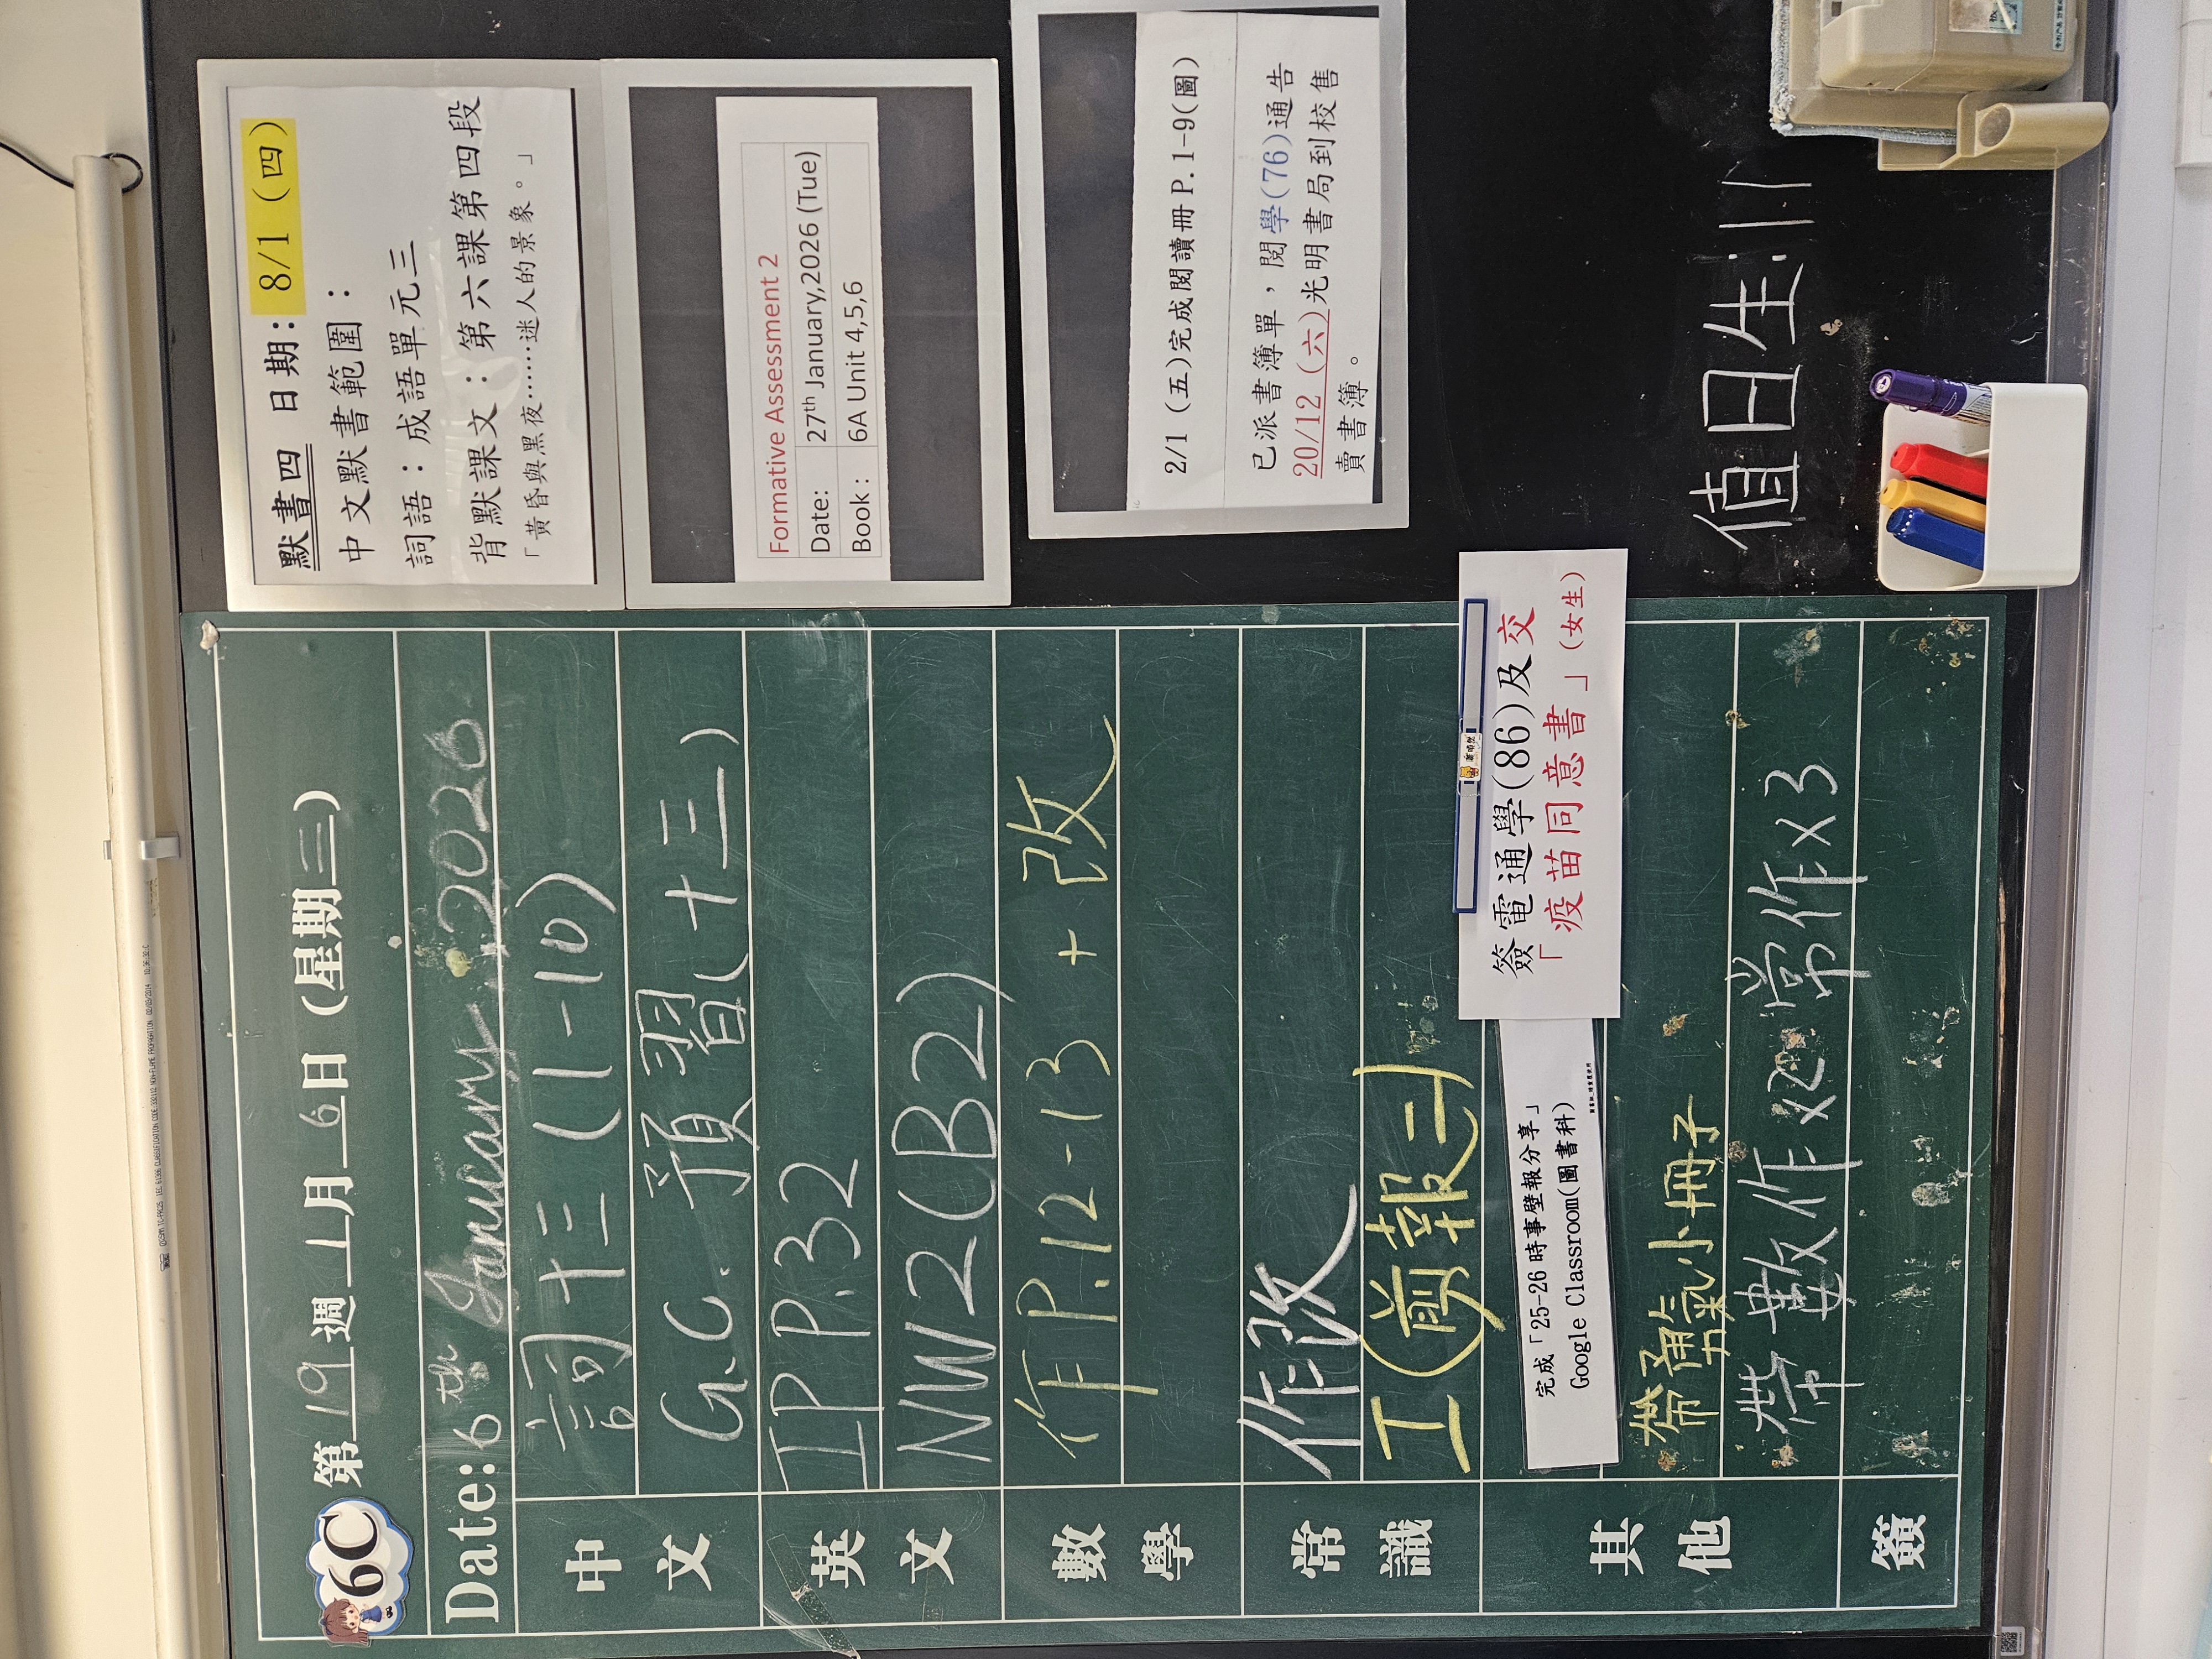 6C 第 19 週 1 月 6 日 (星期三)
Date: 6th January, 2026
中文
詞十三 (1-10)
G.C. 預習(十三)
英文
IP P.32
NW2(B2)
數學
作 P.12-13 + 改
常識
作改
工(剪報二)
其他
完成「25-26 時事壁報分享」
Google Classroom(圖書科)
簽電通學(86)及交
「疫苗同意書」(女生)
帶勇氣小冊子
帶數作x2 常作x3
簽
默書四 日期: 8/1 (四)
中文默書範圍:
詞語:成語單元三
背默課文:第六課第四段
「黃昏與黑夜……迷人的景象。」
Formative Assessment 2
Date: 27th January,2026 (Tue)
Book : 6A Unit 4,5,6
2/1 (五)完成閱讀冊P.1-9(圖)
已派書簿單,閱學(76)通告
20/12 (六)光明書局到校售
賣書簿。
值日生: